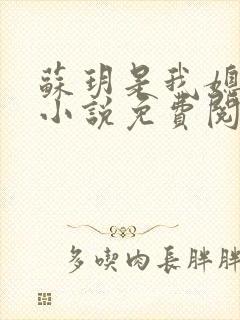 蘇玥是我媳
小說免費閱
多喫肉長胖胖